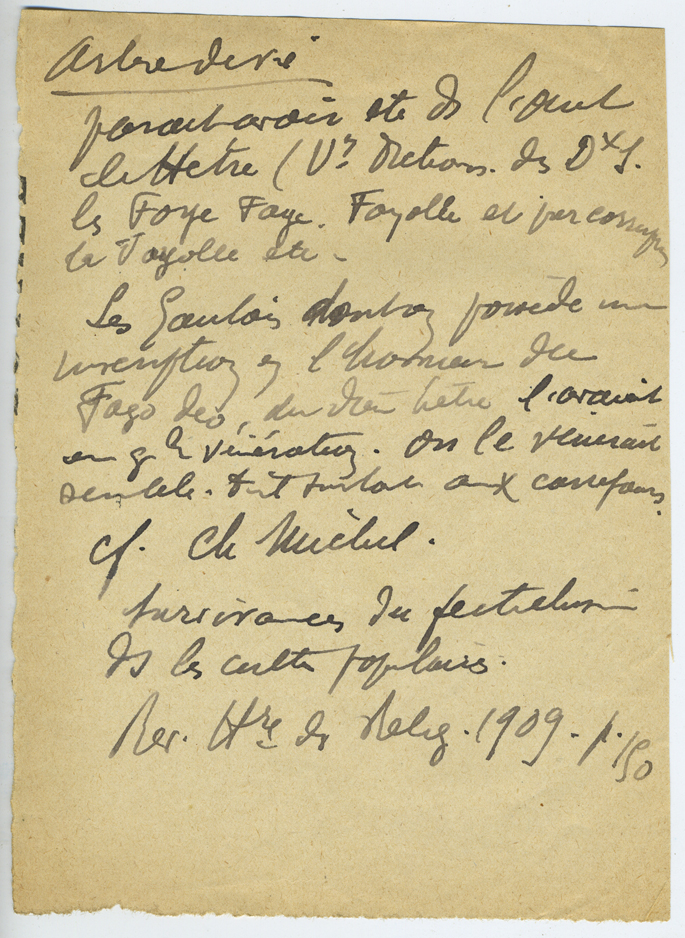 Arbre de vie
parait avoir été ds l'Ouest
le Hêtre (Vr Diction. des Dx S.
les Foye Faye. Fayolle et par corrupt
la Fayolle etc -
Les Gaulois dont on possède une
inscription en l'honneur du
Fago deo, du dieu hêtre l'avait
en gde vénération. On le vénérait
semble-t-il surtout aux carrefours.
cf. Ch Michel.
Survivances du fétichisme
ds les cultes populaires.
Rev. Hre des Relig. 1909. p. 150